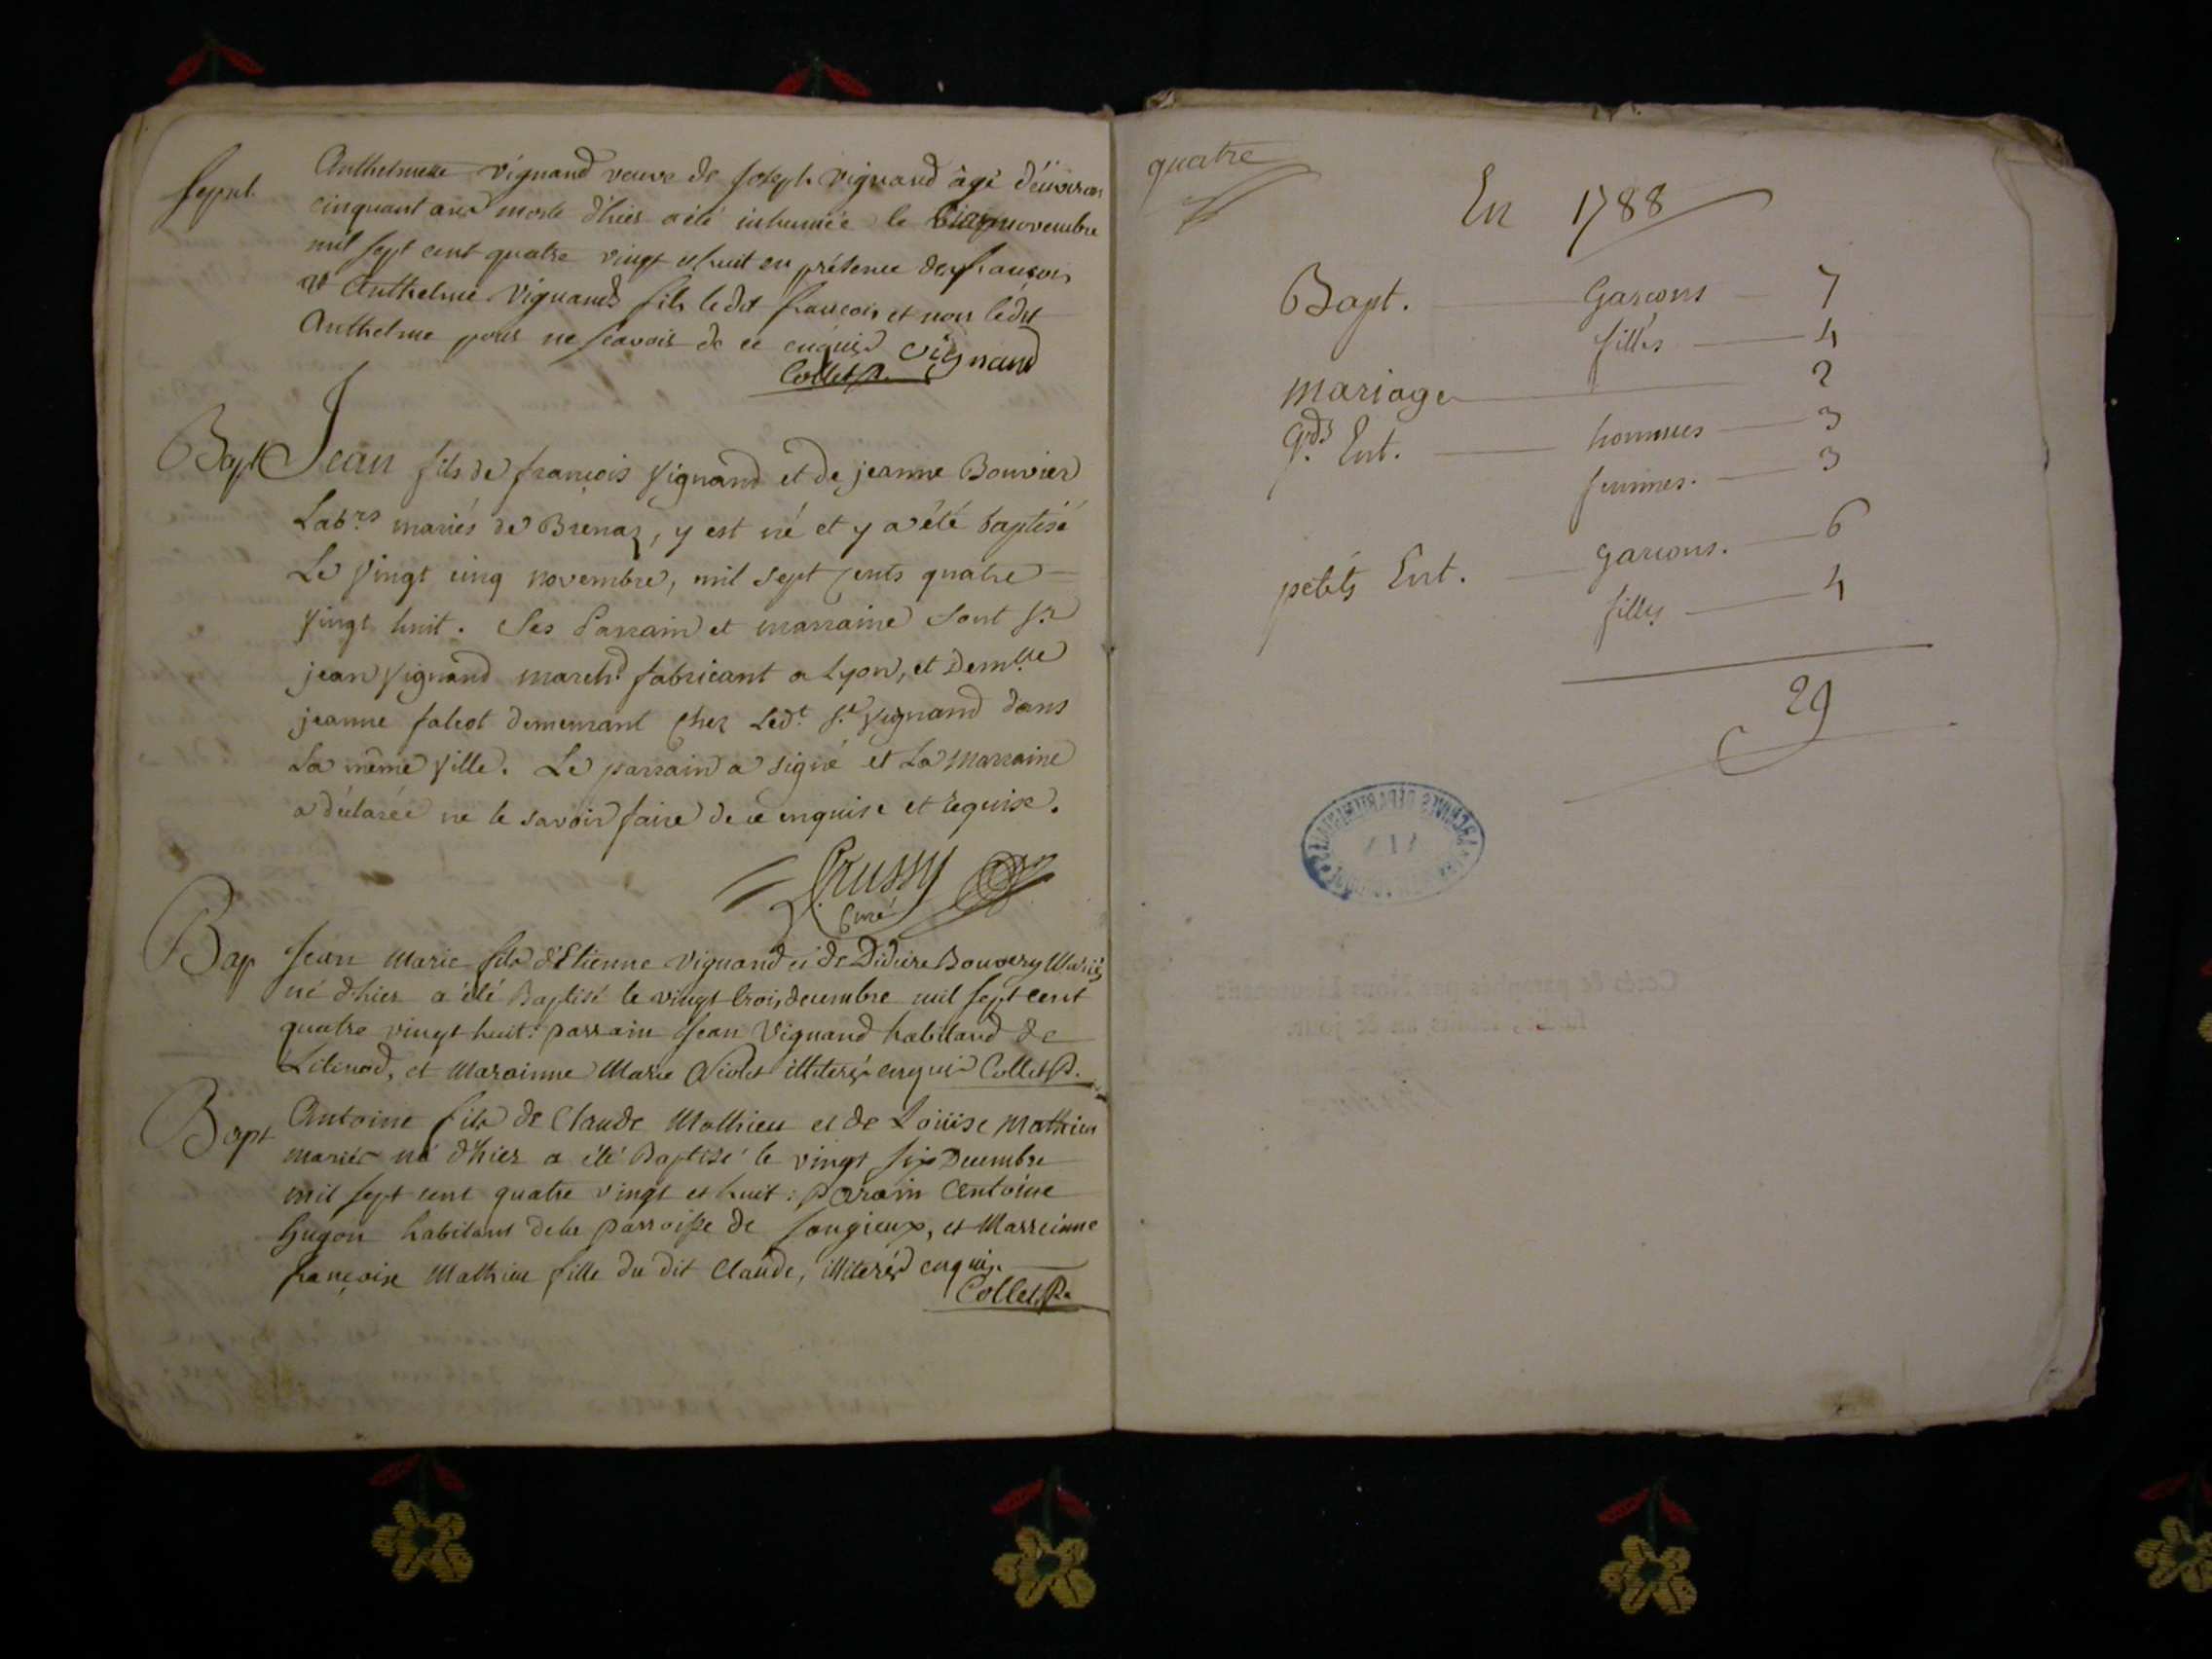 Sepul. Anthelmette Vignand veuve de Joseph Vignand âgé d'environ
cinquant ans morte d'hier a été inhumée le cinq novembre
mil sept cent quatre vingt et huit en présence de françois
et Anthelme Vignands fils ledit françois et non ledit
Anthelme pour ne sçavoir de ce enquis Vignand
Collet
Bapt Jean fils de françois Vignand et de jeanne Bouvier
Labrs mariés de Brenaz, y est né et y a été baptisé
Le Vingt cinq novembre, mil sept cents quatre
Vingt huit. Ses Parrain et marraine sont Sr
jean Vignand marchd fabricant a Lyon, et Demlle
jeanne falcot demeurant chez Ledt Sr Vignand dans
La même Ville. Le parrain a signé et La Marraine
a déclarée ne le savoir faire de ce enquise et requise.
Crussy
Curé
Bap Jean Marie fils d'Etienne Vignand et de Didière Bouvery Mariés
né d'hier a été Baptisé le vingt trois decembre mil sept cent
quatre vingt huit: parrain Jean Vignand habitand de
Lilenod, et Marainne Marie Violet illiterés enquis Collet
Bapt Antoine fils de Claude Mathieu et de Loüise Mathieu
mariés né d'hier a été Baptisé le vingt six Decembre
mil sept cent quatre vingt et huit: Parain Antoine
hugon habitant de la parroisse de Songieux, et Marreinne
françoise Mathieu fille du dit Claude, illiterés enquis
Collet
quatre
En 1788
Bapt. Garçons 7
filles 4
mariage 2
Gds Ent. hommes 3
femmes. 3
petits Ent. garçons. 6
filles 4
29